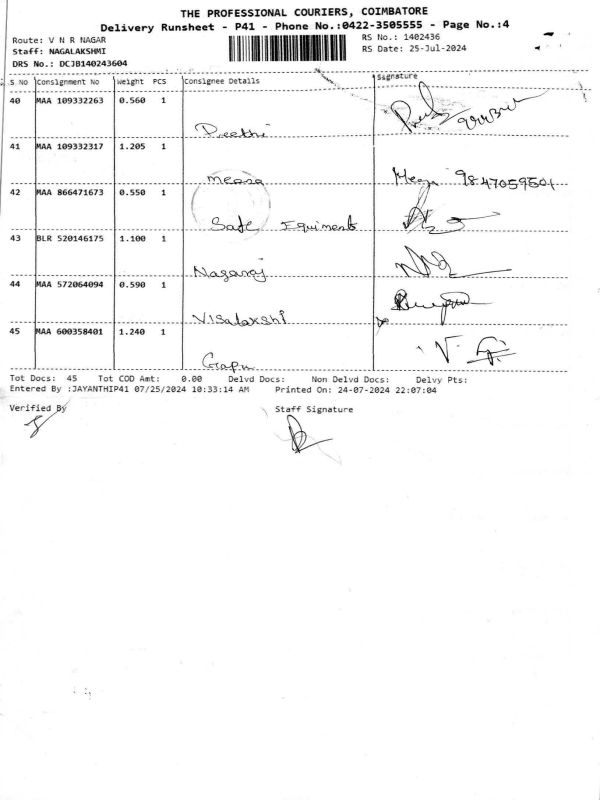 THE PROFESSIONAL COURIERS, COIMBATORE
Delivery Runsheet - P41 - Phone No.:0422-3505555 - Page No.:4
Route: V N R NAGAR RS No.: 1402436
Staff: NAGALAKSHMI RS Date: 25-Jul-2024
DRS No.: DCJB140243604
S No Consignment No Weight PCS Consignee Details Signature
40 MAA 109332263 0.560 1
Preethi
41 MAA 109332317 1.205 1
meena 9847059501
42 MAA 866471673 0.550 1
Safe Equiments
43 BLR 520146175 1.100 1
Nagaraj
44 MAA 572064094 0.590 1
Visalakshi
45 MAA 600358401 1.240 1
Tot Docs: 45 Tot COD Amt: 0.00 Delvd Docs: Non Delvd Docs: Delvy Pts:
Entered By :JAYANTHIP41 07/25/2024 10:33:14 AM Printed On: 24-07-2024 22:07:04
Verified By Staff Signature